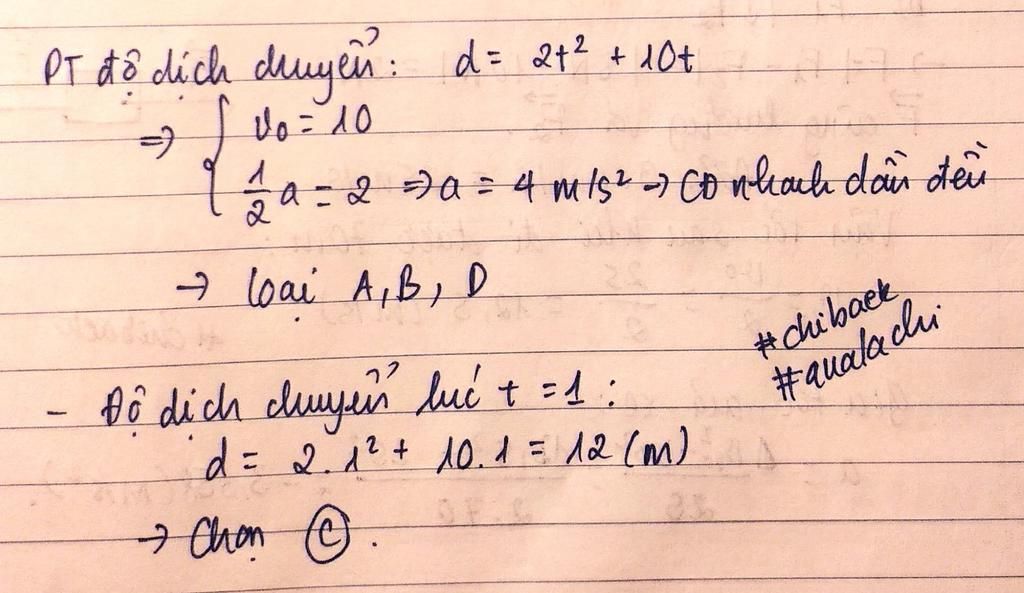 PT độ dịch chuyển: d = 2t² + 10t
⇒ { v₀ = 10
½ a = 2 ⇒ a = 4 m/s² → CĐ nhanh dần đều
→ loại A, B, D
#chibaek
#qualachi
- Độ dịch chuyển lúc t = 1:
d = 2.1² + 10.1 = 12 (m)
→ Chọn Ⓒ.